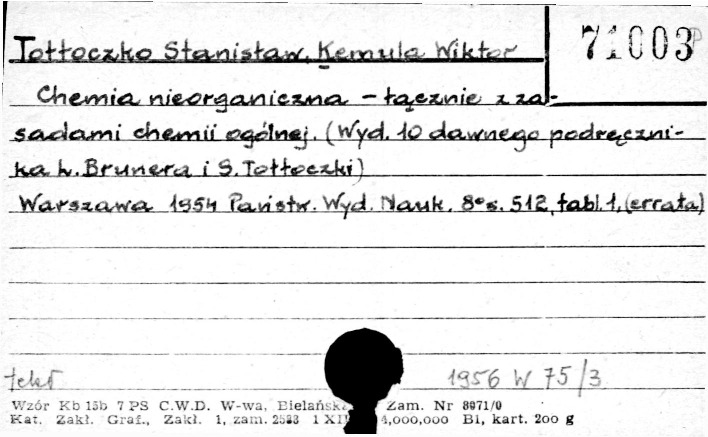 Tołłoczko Stanisław, Kemula Wiktor
71003
Chemia nieorganiczna – łącznie z za-
sadami chemii ogólnej. (Wyd. 10 dawnego podręczni-
ka L. Brunera i S. Tołłoczki)
Warszawa 1954 Państw. Wyd. Nauk. 8° s. 512, tabl. 1, (errata)
tekst
1956 W 75/3
Wzór Kb 15b 7 PS C.W.D. W-wa, Bielańska Zam. Nr 8071/0
Kat. Zakł. Graf., Zakł. 1, zam. 2583 1 XII 4,000,000 Bl, kart. 200 g